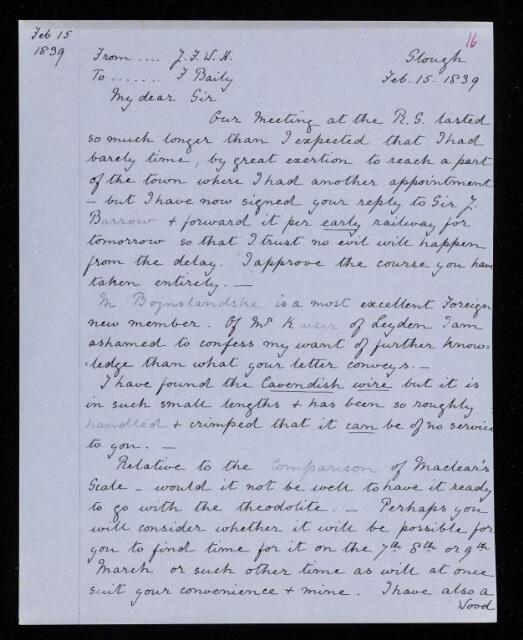 Feb 15
1839
16
From .... J. F. W. H. Slough
To ....... F Baily Feb. 15. 1839
My dear Sir
Our Meeting at the R. S. lasted
so much longer than I expected that I had
barely time, by great exertion to reach a part
of the town where I had another appointment
- but I have now signed your reply to Sir J.
Barrow + forward it per early railway for
tomorrow so that I trust no evil will happen
from the delay. I approve the course you have
taken entirely. —
M. is a most excellent Foreign
new member. Of Mr Kaiser of Leyden I am
ashamed to confess my want of further know=
=ledge than what your letter conveys. —
I have found the Cavendish wire but it is
in such small lengths + has been so roughly
handled + crimped that it can be of no service
to you. —
Relative to the Comparison of Maclear's
Scale - would it not be well to have it ready
to go with the theodolite. — Perhaps you
will consider whether it will be possible for
you to find time for it on the 7th 8th or 9th
March or such other time as will at once
suit your convenience + mine. I have also a
Wood